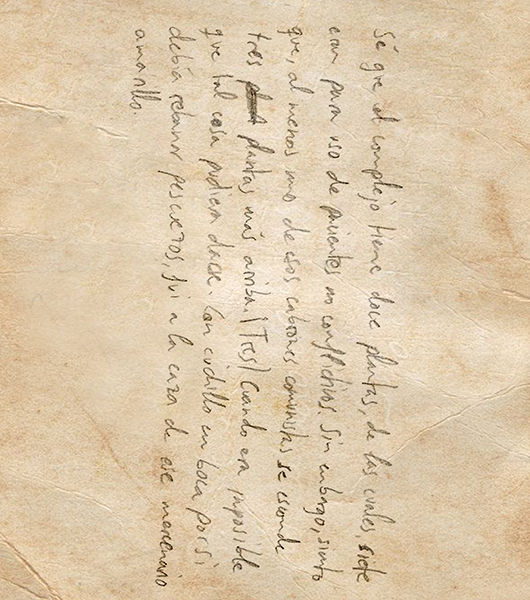 Sé que el complejo tiene doce plantas, de las cuales, siete
eran para uso de pacientes no conflictivos. Sin embargo, siento
que, al menos uno de esos cabrones comunistas se esconde
tres plantas más arriba. ¡Tres! Cuando era imposible
que tal cosa pudiera darse. Con cuchillo en boca por si
debía rebanar pescuezos, fui a la caza de ese mercenario
amarillo.